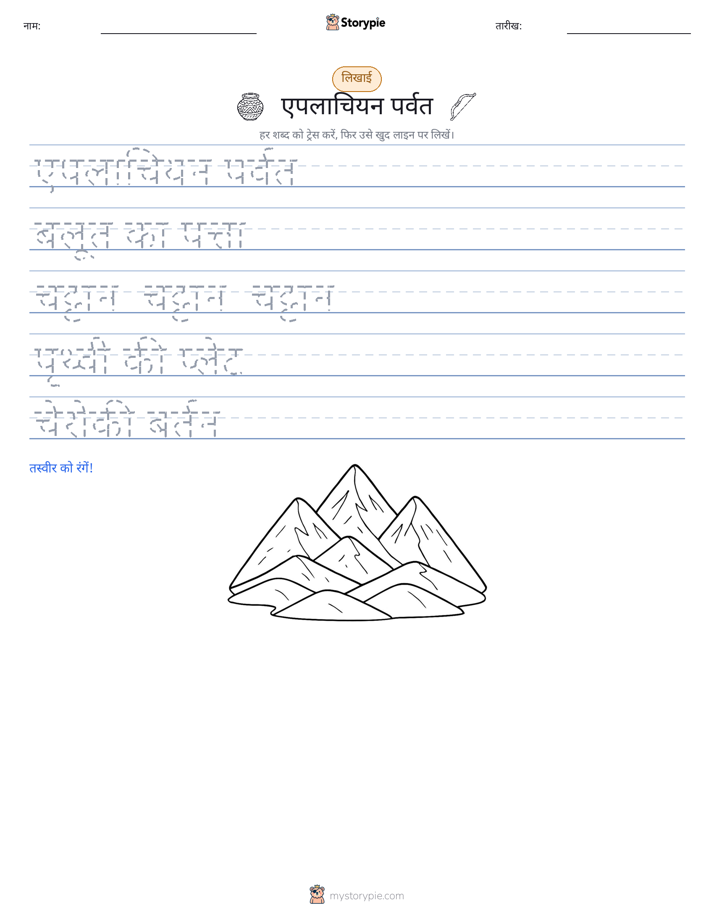 नाम:
Storypie
तारीख:
लिखाई
एपलाचियन पर्वत
हर शब्द को ट्रेस करें, फिर उसे खुद लाइन पर लिखें।
एपलाचियन पर्वत
बलूत का पत्ता
चट्टान चट्टान चट्टान
पृथ्वी की प्लेट
चेरोकी बर्तन
तस्वीर को रंगें!
mystorypie.com